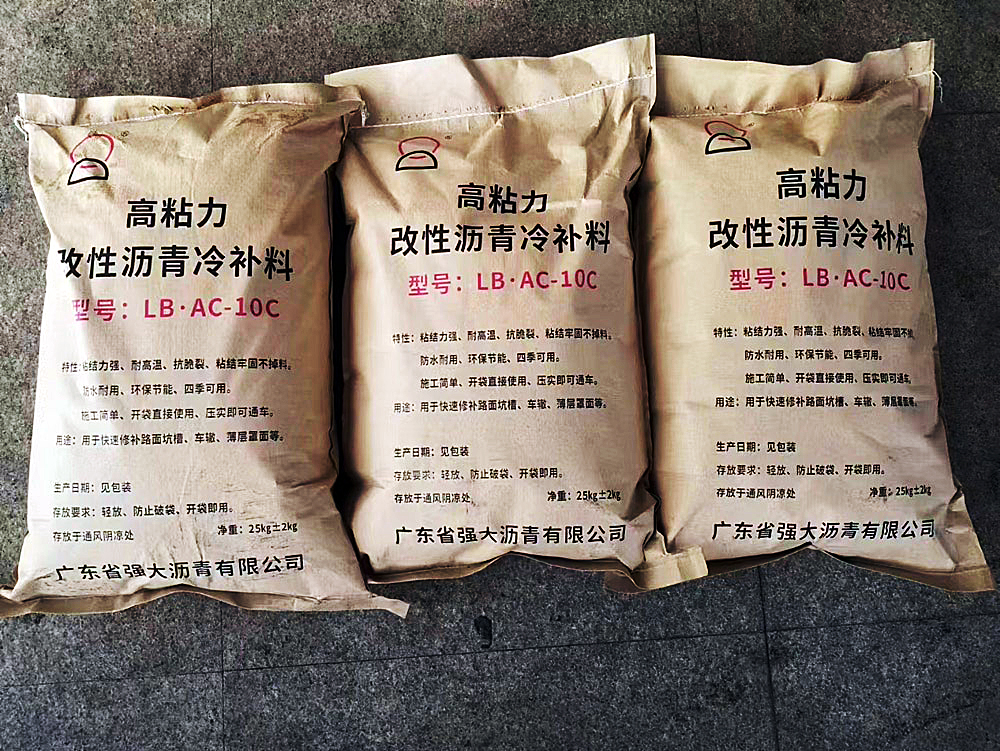 高粘力
改性沥青冷补料
型号：LB·AC-10C
特性：粘结力强、耐高温、抗脆裂、粘结牢固不掉料。
防水耐用、环保节能、四季可用。
施工简单、开袋直接使用、压实即可通车。
用途：用于快速修补路面坑槽、车辙、薄层罩面等。
生产日期：见包装
存放要求：轻放、防止破袋、开袋即用。
存放于通风阴凉处 净重：25kg±2kg
广东省强大沥青有限公司
高粘力
改性沥青冷补料
型号：LB·AC-10C
特性：粘结力强、耐高温、抗脆裂、粘结牢固不掉料。
防水耐用、环保节能、四季可用。
施工简单、开袋直接使用、压实即可通车。
用途：用于快速修补路面坑槽、车辙、薄层罩面等。
生产日期：见包装
存放要求：轻放、防止破袋、开袋即用。
存放于通风阴凉处 净重：25kg±2kg
广东省强大沥青有限公司
高粘力
改性沥青冷补料
型号：LB·AC-10C
特性：粘结力强、耐高温、抗脆裂、粘结牢固不掉
防水耐用、环保节能、四季可用。
施工简单、开袋直接使用、压实即可通车。
用途：用于快速修补路面坑槽、车辙、薄层罩面等。
生产日期：见包装
存放要求：轻放、防止破袋、开袋即用。
存放于通风阴凉处 净重：25kg±2kg
广东省强大沥青有限公司